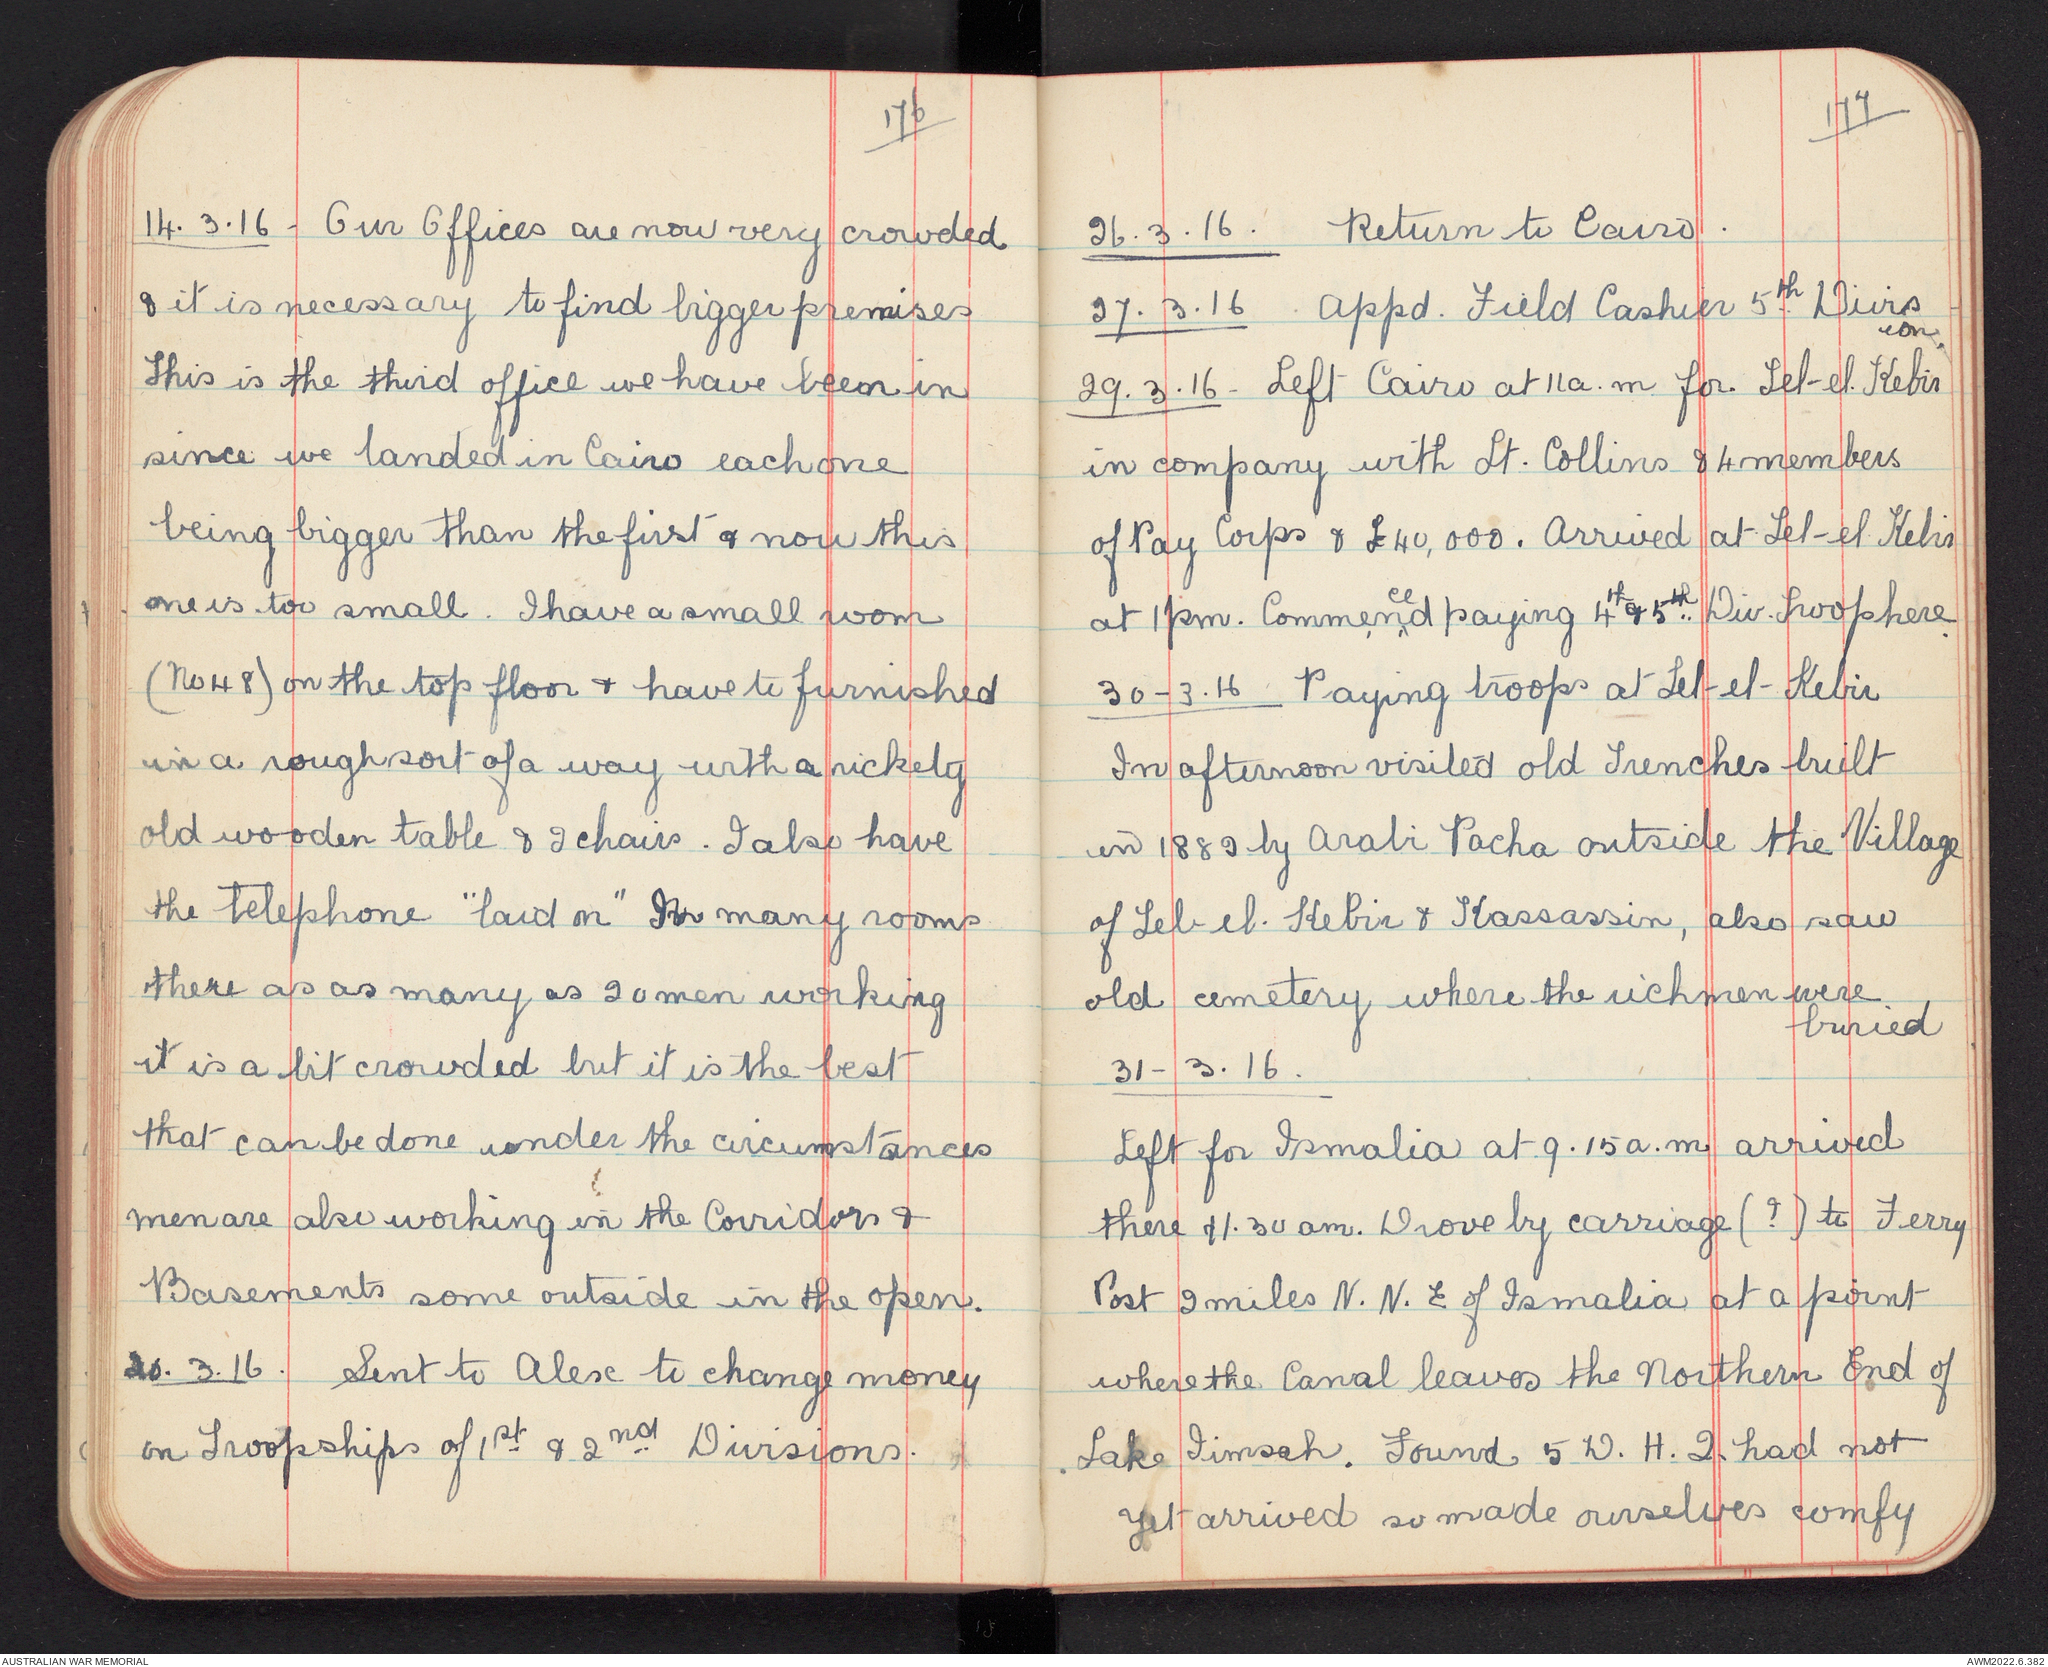 176
14. 3. 16 - Our Offices are now very crowded
& it is necessary to find bigger premises
This is the third office we have been in
since we landed in Cairo each one
being bigger than the first & now this
one is too small. I have a small room
(No 48) on the top floor & have it furnished
in a rough sort of a way with a rickety
old wooden table & 2 chairs. I also have
the telephone "laid on" In many rooms
there as as many as 20 men working
it is a bit crowded but it is the best
that can be done under the circumstances
men are also working in the Corridors &
Basements some outside in the open.
20. 3. 16. Sent to Alex to change money
on Troopships of 1st & 2nd Divisions.
177
26. 3. 16. Return to Cairo.
27. 3. 16 Appd. Field Cashier 5th Divis
ion.
29. 3. 16 - Left Cairo at 11 a.m for Tel-el. Kebir
in company with Lt. Collins & 4 members
of Pay Corps & £40,000. Arrived at Tel-el Kebir
at 1 pm. Commenced paying 4th & 5th Div. Troops here.
30 - 3. 16 Paying troops at Tel-el-Kebir
In afternoon visited old Trenches built
in 1882 by Arabi Pacha outside the Village
of Tel-el. Kebir & Kassassin, also saw
old cemetery where the richmen were
buried
31 - 3. 16.
Left for Ismalia at 9.15 a.m arrived
there 11.30 am. Drove by carriage (?) to Ferry
Post 2 miles N. N. E of Ismalia at a point
where the Canal leaves the Northern End of
Lake Timsah. Found 5 D. H. Q. had not
yet arrived so made ourselves comfy
AUSTRALIAN WAR MEMORIAL
AWM2022.6.382